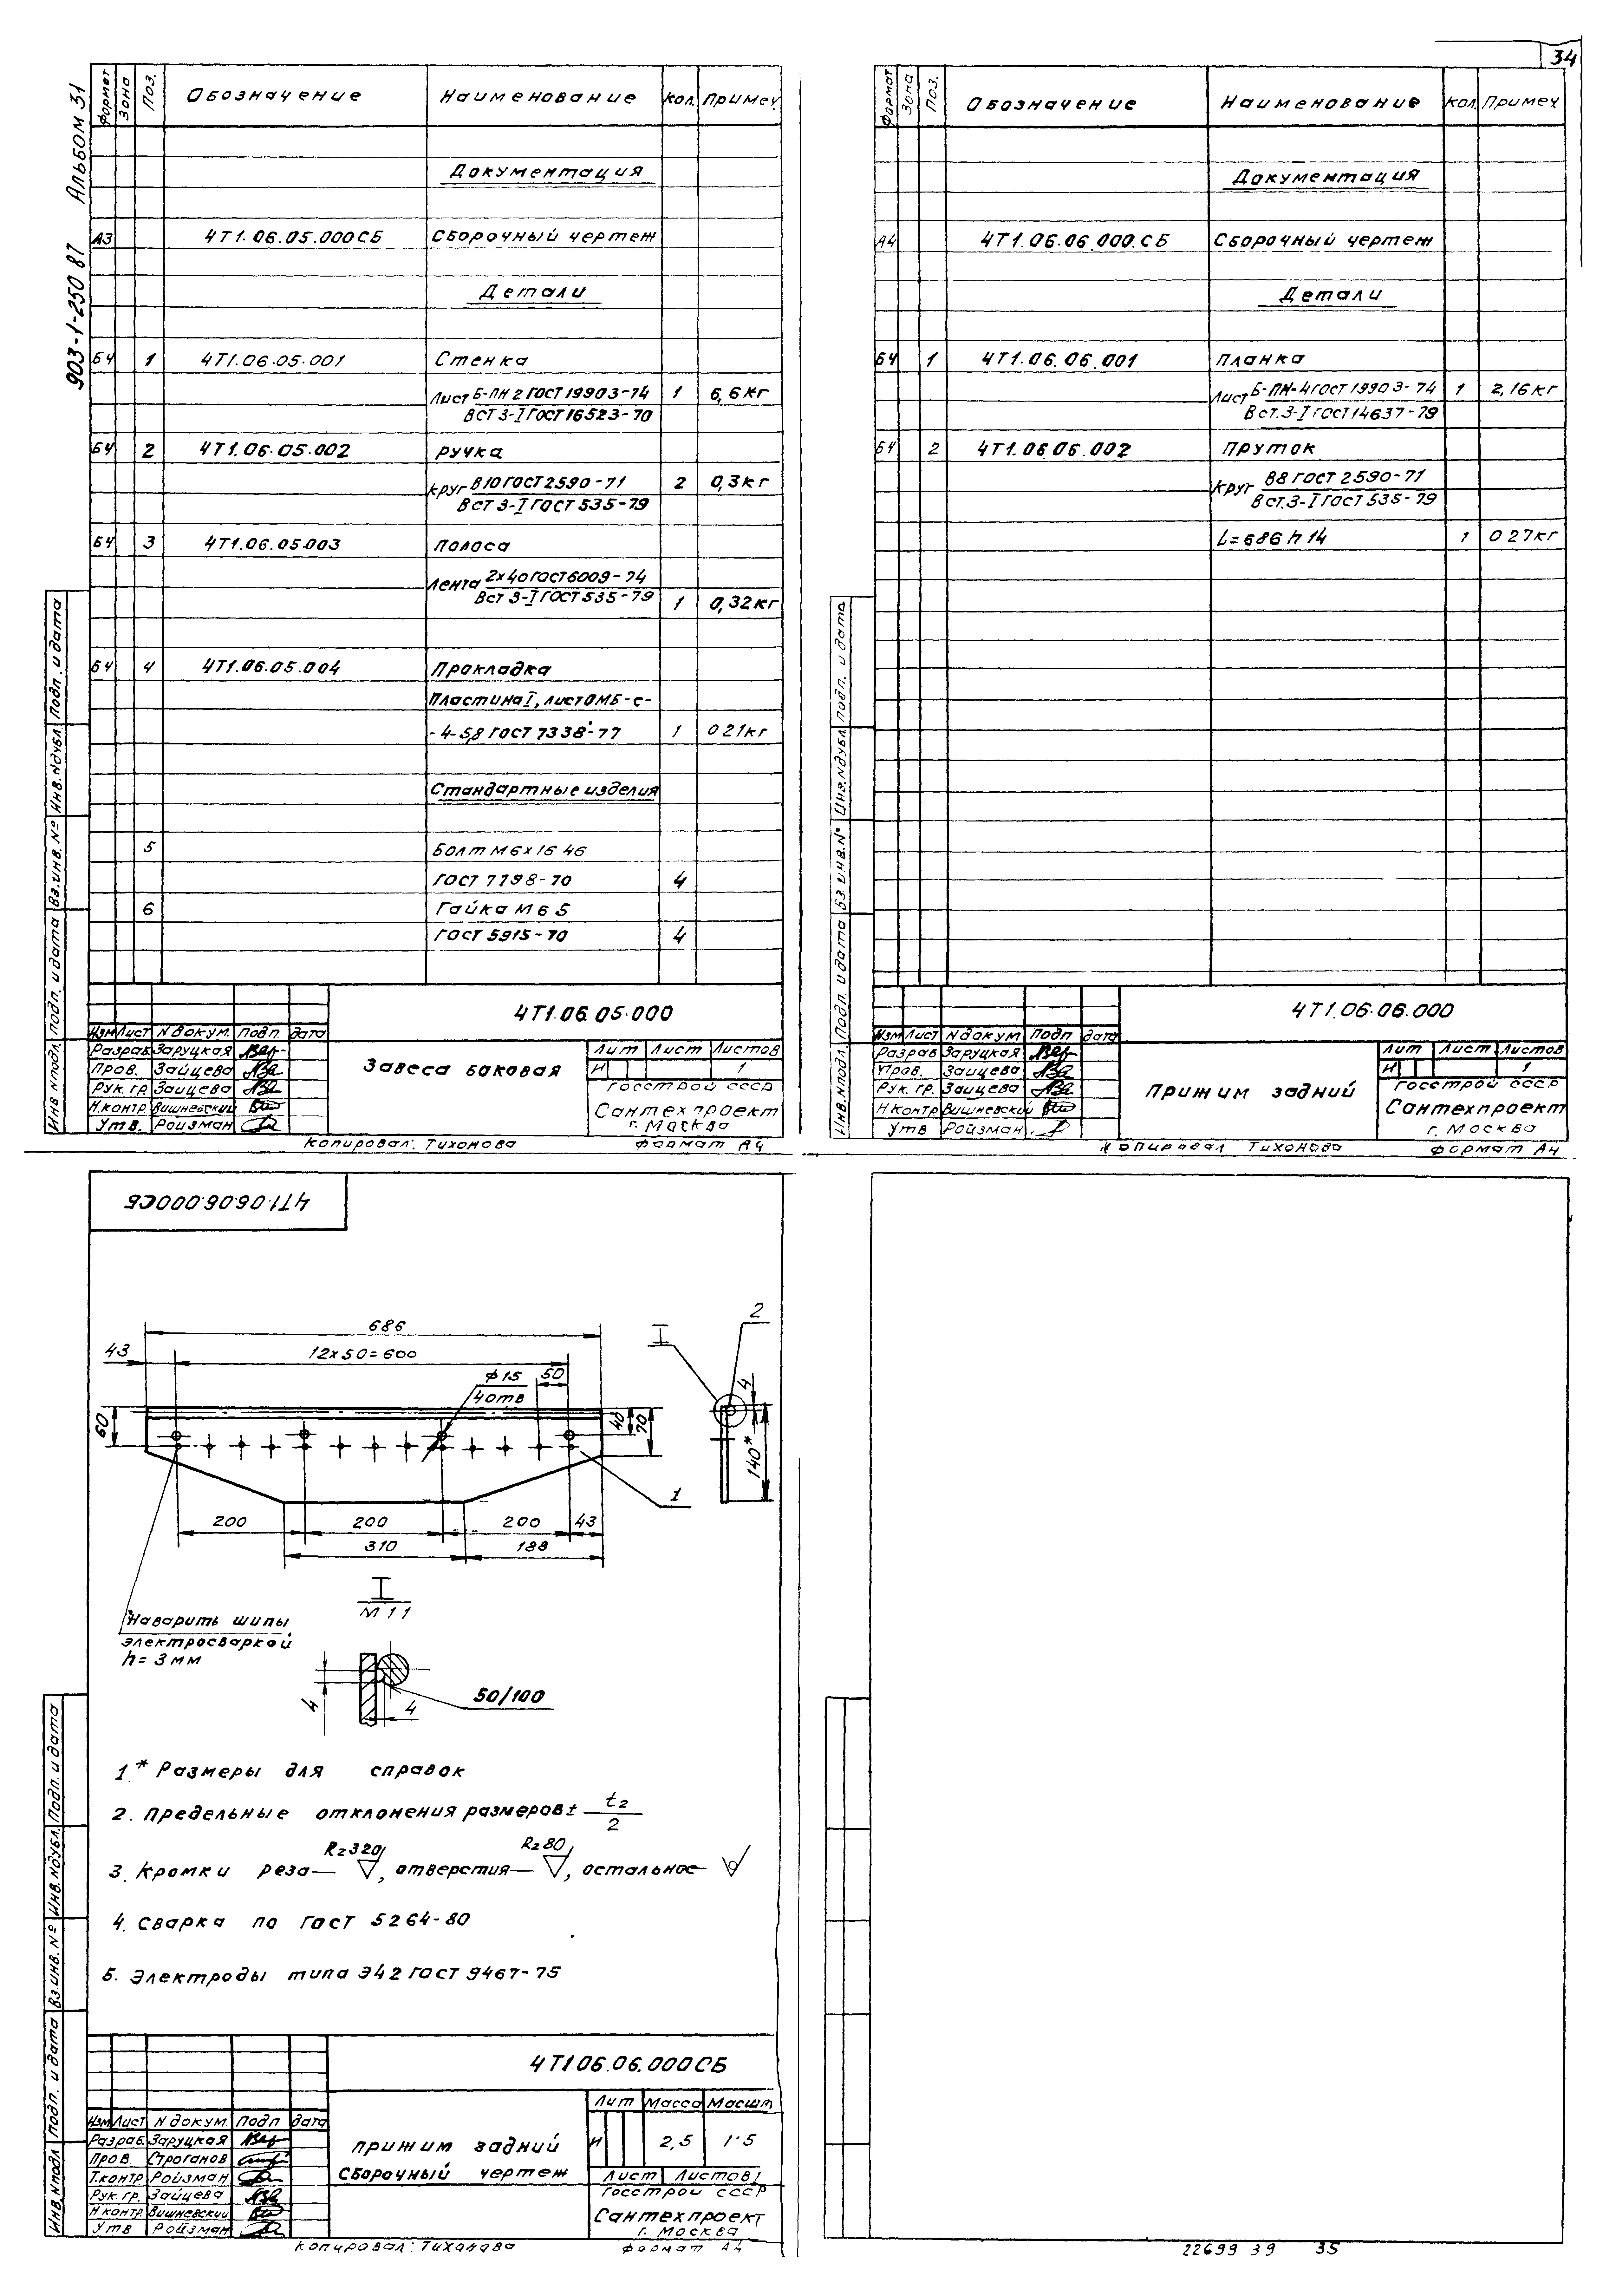 34
903-1-250 87 Альбом 31
Формат Зона Поз. Обозначение Наименование Кол. Примеч
Документация
А3 4Т1.06.05.000СБ Сборочный чертеж
Детали
БЧ 1 4Т1.06.05.001 Стенка
Лист Б-ПН 2 ГОСТ 19903-74 1 6,6кг
Вст 3-I ГОСТ 16523-70
БЧ 2 4Т1.06.05.002 Ручка
Круг В10 ГОСТ 2590-71 2 0,3кг
Вст 3-I ГОСТ 535-79
БЧ 3 4Т1.06.05.003 Полоса
Лента 2х40 ГОСТ 6009-74
Вст 3-I ГОСТ 535-79 1 0,32кг
БЧ 4 4Т1.06.05.004 Прокладка
Пластина I, лист ОМБ-с-
-4-5,8 ГОСТ 7338-77 1 0 21кг
Стандартные изделия
5 Болт М6х16 46
ГОСТ 7798-70 4
6 Гайка М6 5
ГОСТ 5915-70 4
4Т1.06.05.000
Изм Лист N докум. Подп дата
Разраб. Заруцкая
Пров. Зайцева
Рук. гр. Зайцева
Н.контр. Вишневский
Утв. Ройзман
Завеса боковая
Лит Лист Листов
И 1
Госстрой СССР
Сантехпроект
г. Москва
Копировал: Тихонова Формат А4
Инв. N подл Подп. и дата Вз. инв. № Инв. N дубл Подп. и дата
Формат Зона Поз. Обозначение Наименование Кол. Примеч
Документация
А4 4Т1.06.06.000.СБ Сборочный чертеж
Детали
БЧ 1 4Т1.06.06.001 Планка
Лист Б-ПН-4 ГОСТ 19903-74 1 2,16кг
Вст.3-I ГОСТ 14637-79
БЧ 2 4Т1.06 06.002 Пруток
Круг В8 ГОСТ 2590-71
Вст.3-I ГОСТ 535-79
L=686 h 14 1 0 27кг
4Т1.06.06.000
Изм Лист N докум. Подп дата
Разраб Заруцкая
Пров. Зайцева
Рук. гр. Зайцева
Н.контр Вишневский
Утв Ройзман
Прижим задний
Лит Лист Листов
И 1
Госстрой СССР
Сантехпроект
г. Москва
Копировал Тихонова Формат А4
Инв. N подл Подп. и дата Вз. инв. № Инв. N дубл Подп. и дата
4Т1.06.06.000СБ
686
43 12х50=600
ϕ15 50
4отв
60 40 70
200 200 200 43
310 188
1
I 2
4
140*
Наварить шипы
электросваркой
h=3мм
I
М 1 1
4 4
50/100
1.* Размеры для справок
2. Предельные отклонения размеров ± t2/2
3. Кромки реза — Rz320, отверстия — Rz80, остальное
4. Сварка по ГОСТ 5264-80
5. Электроды типа Э42 ГОСТ 9467-75
4Т1.06.06.000СБ
Изм Лист N докум. Подп дата
Разраб. Заруцкая
Пров Строганов
Т.контр Ройзман
Рук. гр. Зайцева
Н.контр. Вишневский
Утв Ройзман
Прижим задний
Сборочный чертеж
Лит Масса Масшт
И 2,5 1:5
Лист Листов 1
Госстрой СССР
Сантехпроект
г. Москва
Копировал: Тихонова Формат А4
Инв. N подл Подп. и дата Вз инв. № Инв. N дубл. Подп. и дата
22699 39 35